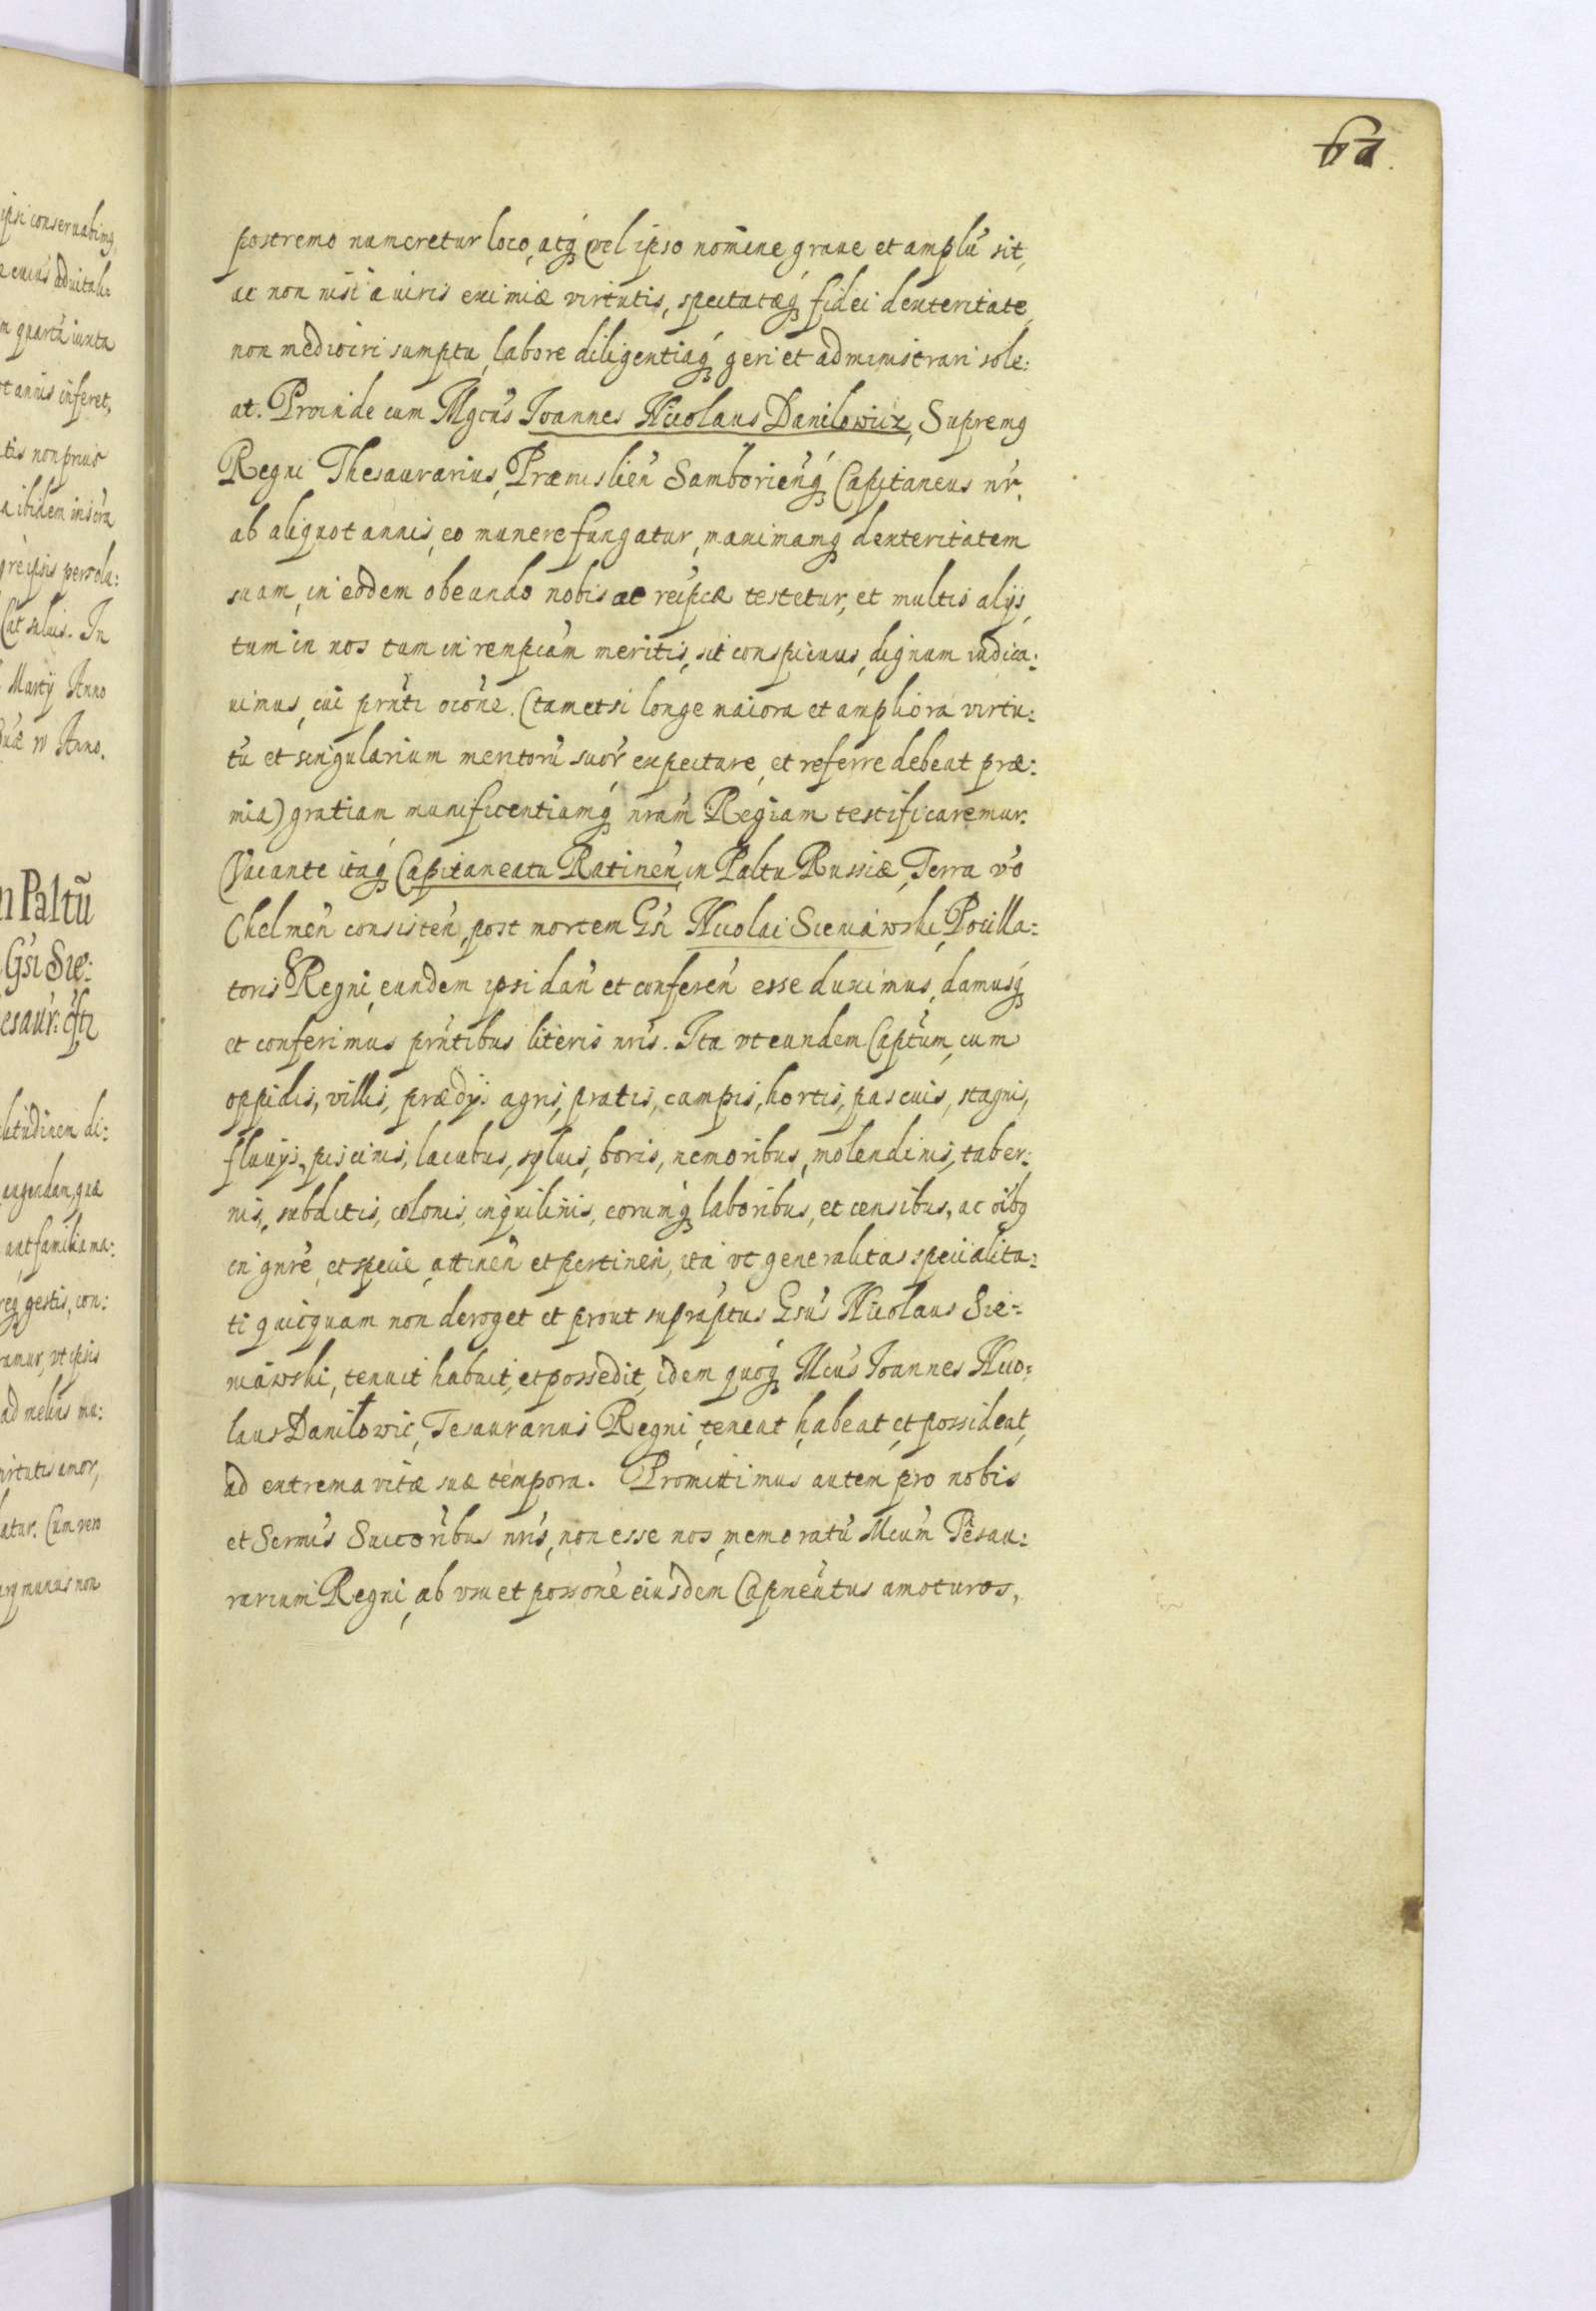 61.
postremo numeretur loco, atq́ꝫ vel ipso nomine graue et amplū sit,
ac non nisi a uiris eximiæ virtutis, spectatæq́ꝫ fidei dexteritate,
non mediocri sumptu, labore diligentiaq́ꝫ geri et administrari sole:
at. Proinde cum Mgcus Ioannes Nicolaus Danilowicz, Supremꝯ
Regni Thesaurarius, Præmislien̄ Samborien̄q́ꝫ Capitaneus nr̄.
ab aliquot annis, eo munere fungatur, maximamq́ꝫ dexteritatem
suam, in eodem obeundo nobis ac reipcæ testetur, et multis alijs,
tum in nos tum in rempcam meritis, sit conspicuus, dignum iudica:
uimus, cui prn̄ti ocōne. (tametsi longe maiora et ampliora virtu:
tū et singularium meritorū suor̄ expectare, et referre debeat præ:
mia) gratiam munificentiamq́ꝫ nram̄ Regiam testificaremur.
Vacante itaq́ꝫ Capitaneatu Ratinen̄, in Paltu Russiæ, Terra v̄o
Chelmen̄ consisten̄, post mortem Gsi Nicolai Sieniawski, Pocilla:
toris Regni, eundem ipsi dan̄ et conferen̄ esse duximus, damusq́ꝫ
et conferimus prn̄tibus literis nris̄. Ita vt eundem Captum̄, cum
oppidis, villis, prædijs agris, pratis, campis, hortis, pascuis, stagnis,
fluuijs, piscinis, lacubus, syluis, boris, nemoribus, molendinis, taber:
nis, subditis, colonis, inquilinis, eorumq́ꝫ laboribus, et censibus, ac oībꝯ
in gnr̄e, et specie, attinen̄ et pertinen̄, ita vt generalitas specialita:
ti quicquam non deroget et prout supraptus Gsus Nicolaus Sie:
niawski, tenuit habuit, et possedit, idem quoq́ꝫ Mcus Ioannes Nico:
laus Daniłowic, Tesaurarius Regni, teneat, habeat, et possideat,
ad extrema vitæ suæ tempora. Promittimus autem pro nobis
et Sermis Succoribus nris̄, non esse nos, memoratū Mcum Tesau:
rarium Regni, ab vsu et possone eiusdem Capneatus amoturos,